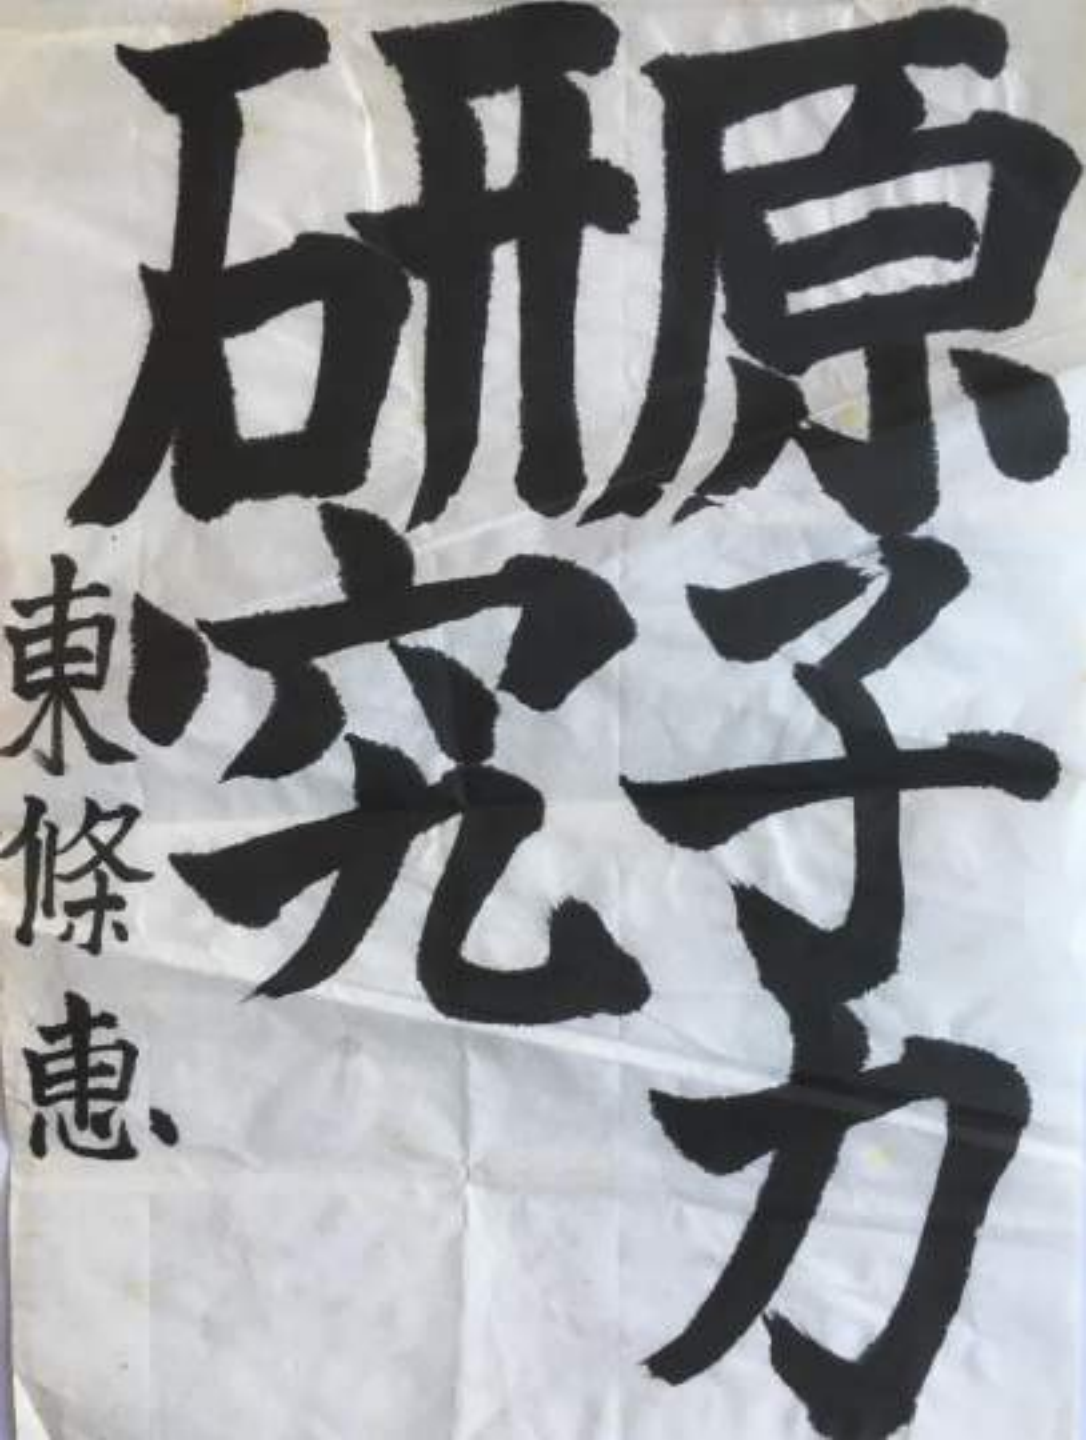 原子力
研究
東條恵